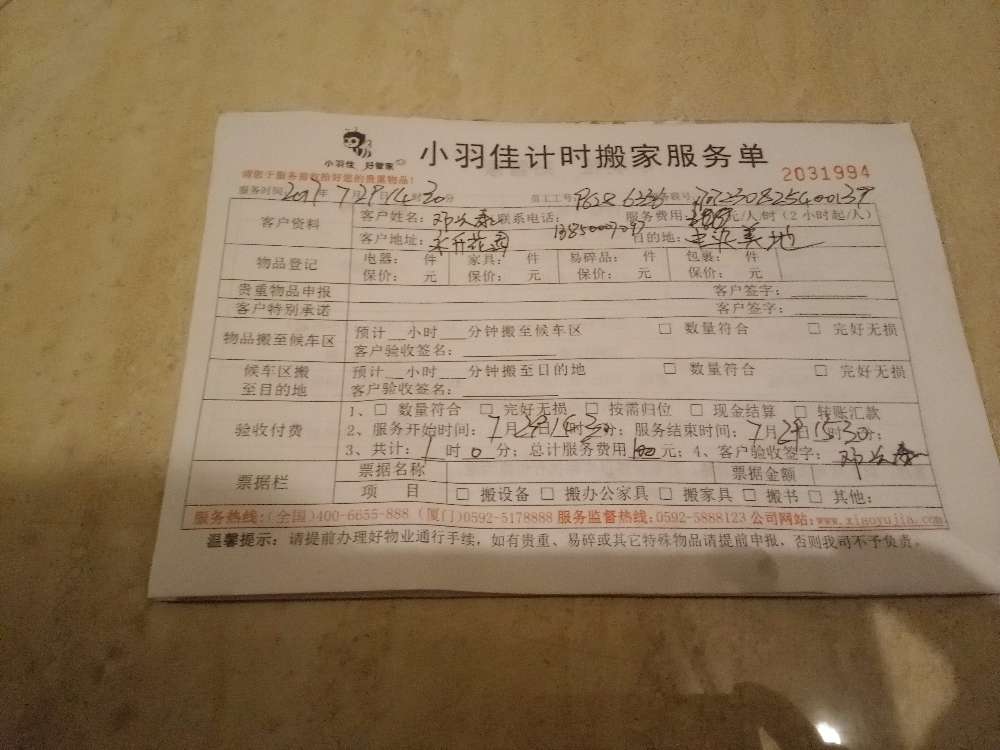 小羽佳 好管家
小羽佳计时搬家服务单
2031994
请您于服务前收拾好您的贵重物品!
服务时间 2017年 7月29日 14时30分 员工工号 服务载号
客户资料 客户姓名: 联系电话: 服务费用: 元/人/时(2小时起/人)
客户地址: 目的地:
物品登记 电器: 件 家具: 件 易碎品: 件 包裹: 件
保价: 元 保价: 元 保价: 元 保价: 元
贵重物品申报 客户签字:
客户特别承诺 客户签字:
物品搬至候车区 预计__小时___分钟搬至候车区 □ 数量符合 □ 完好无损
客户验收签名:
候车区搬至目的地 预计__小时___分钟搬至目的地 □ 数量符合 □ 完好无损
客户验收签名:
验收付费 1、□ 数量符合 □ 完好无损 □ 按需归位 □ 现金结算 □ 转账汇款
2、服务开始时间: 7月29日14时30分; 服务结束时间: 7月29日15时30分;
3、共计: 1时0分; 总计服务费用100元; 4、客户验收签字:
票据栏 票据名称 票据金额
项 目 □ 搬设备 □ 搬办公家具 □ 搬家具 □ 搬书 □ 其他:
服务热线:(全国)400-6655-888 (厦门)0592-5178888 服务监督热线:0592-5888123 公司网站:www.xiaoyujia.com
温馨提示: 请提前办理好物业通行手续,如有贵重、易碎或其它特殊物品请提前申报,否则我司不予负责。